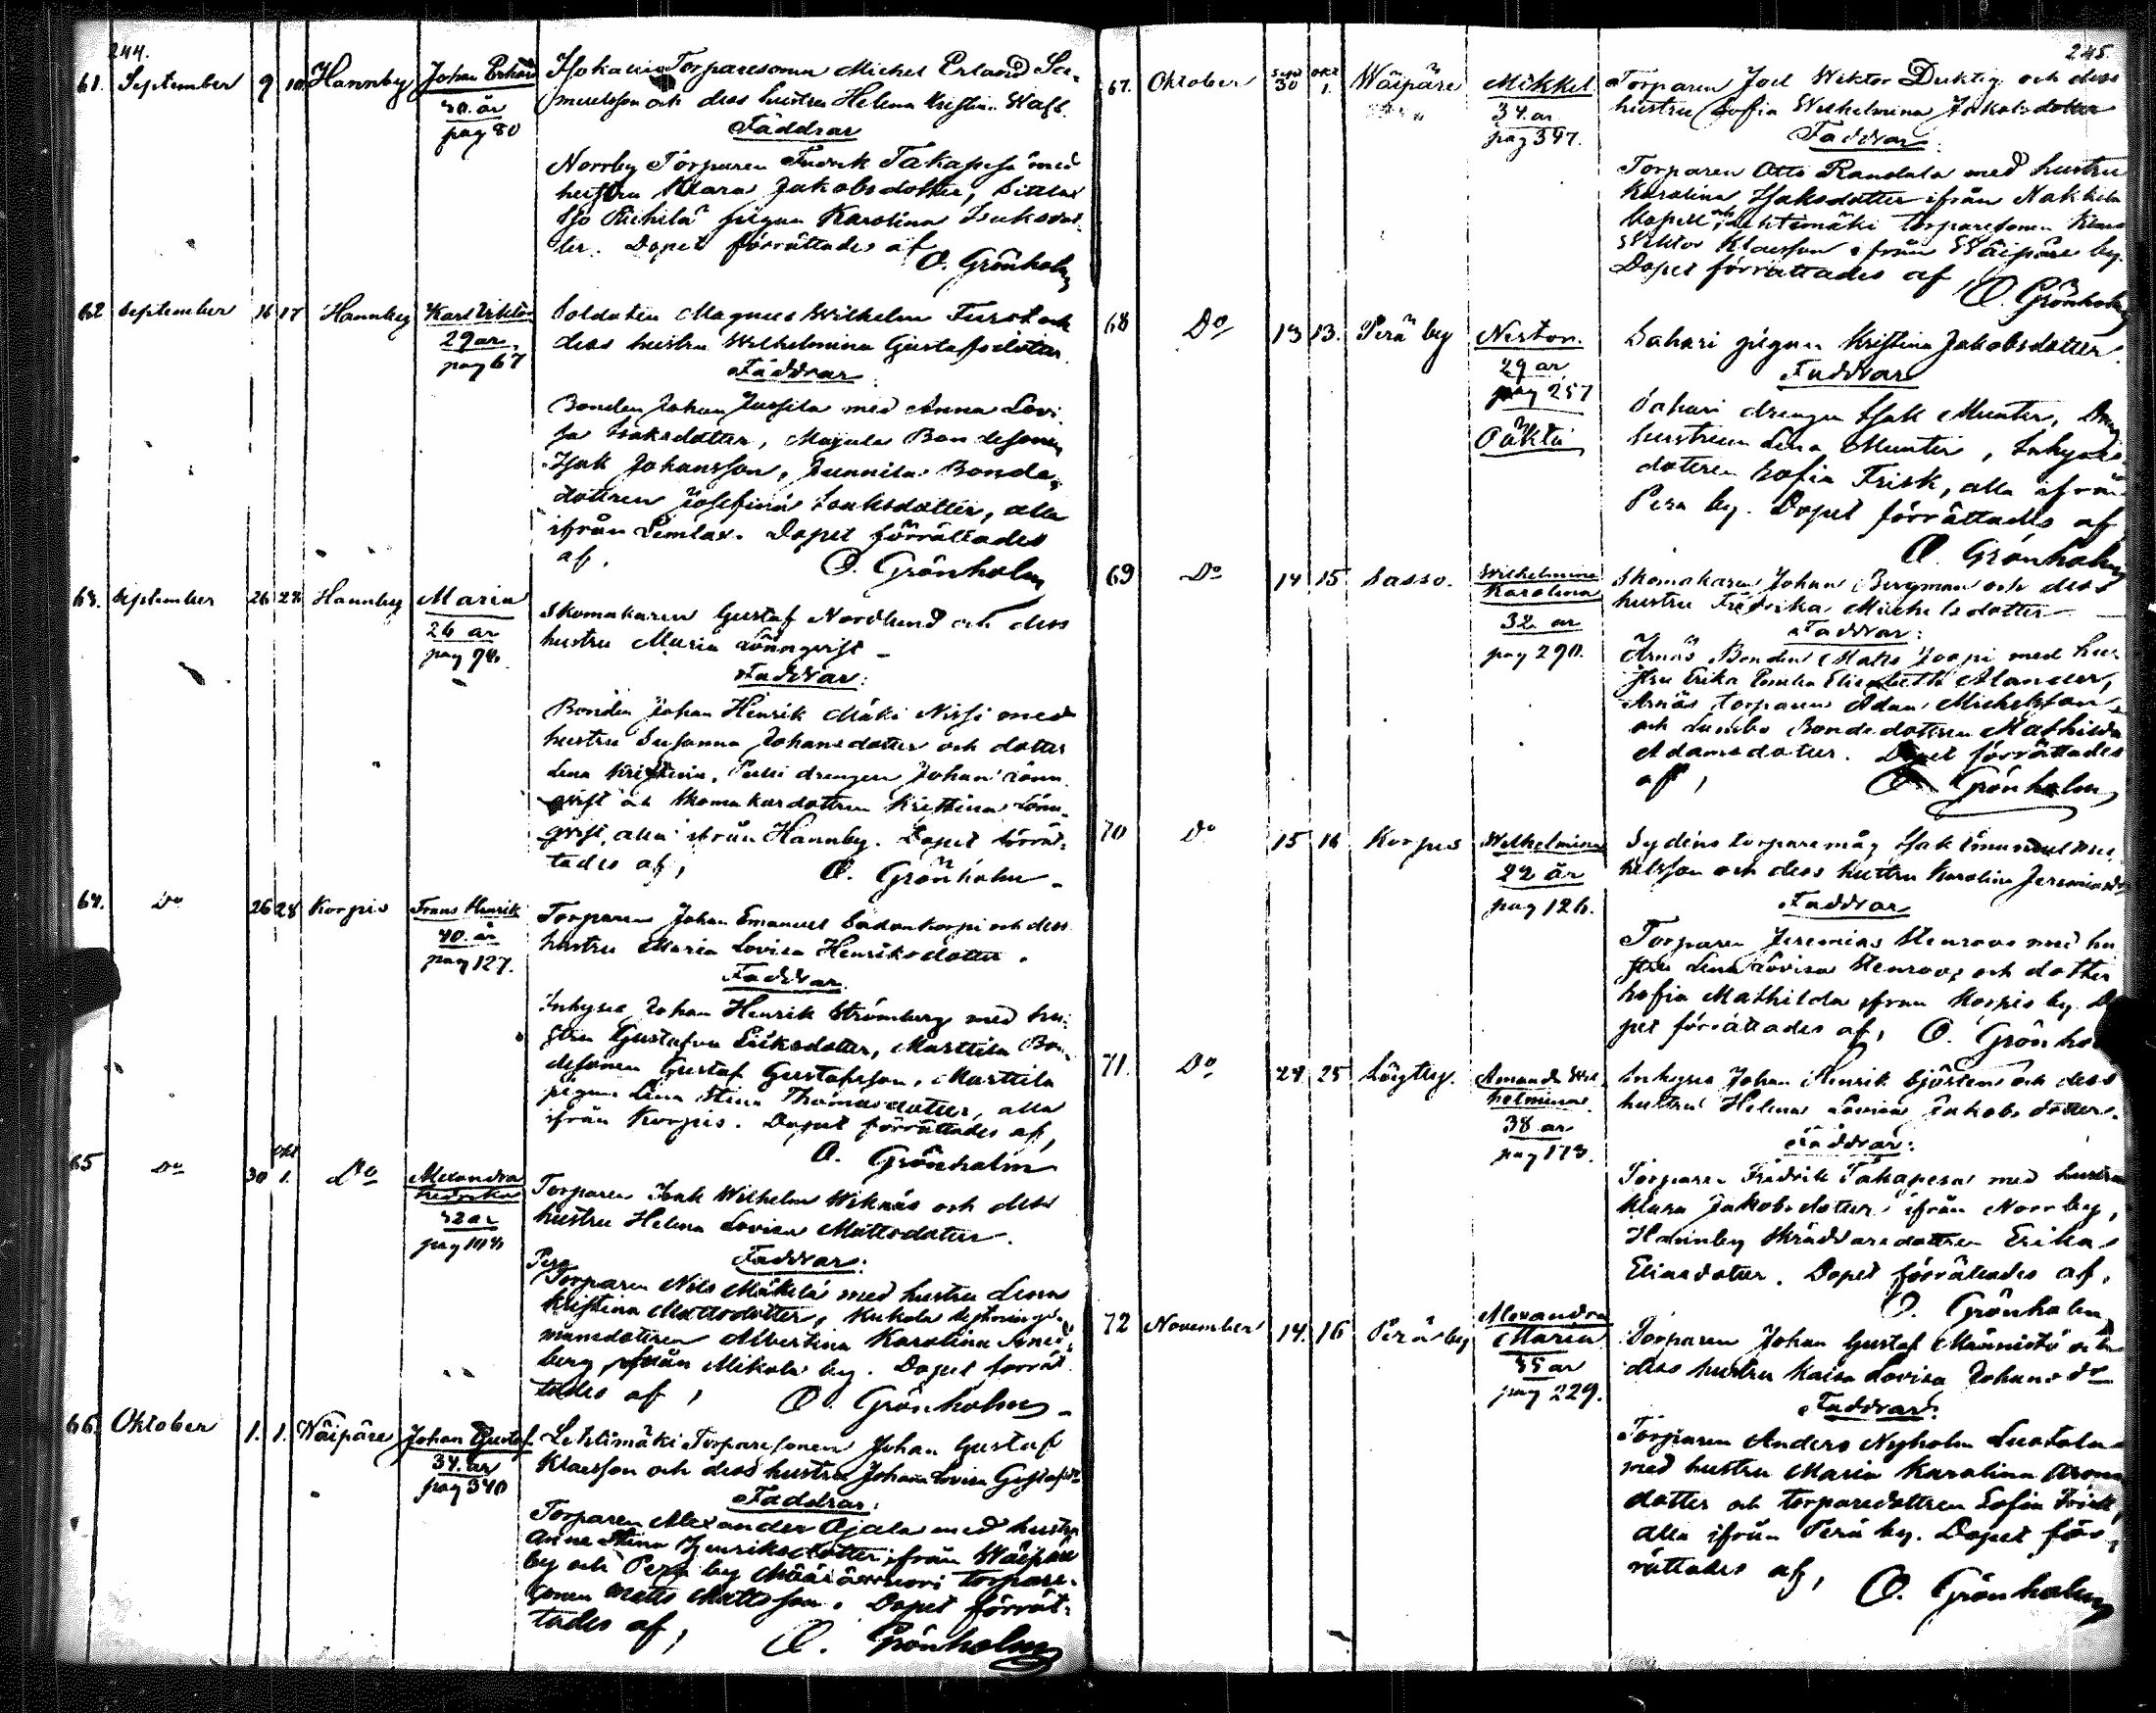 244.
61. September 9 10 Hannby Johan Erland
30. år
pag 80
Torparesonen Michel Erland Sa-
muelsson och dess hustru Helena Kristina
Faddrar
Norrby Torparen Fredrik Takapesa med
hustru Klara Jakobsdotter,
pigan Karolina Isaksdot-
ter. Dopet förrättades af
O. Grönholm
62 September 16 17 Hannby Karl Viktor
29 år,
pag 67
Soldaten Magnus Wilhelm Furst och
dess hustru Wilhelmina Gustafsdotter
Faddrar
Bonden Johan Jussila med Anna Lovi-
sa Isaksdotter, Bondesonen
Isak Johansson, Junnila Bonde-
dottren Josefina Isaksdotter, alla
ifrån Lemlax. Dopet förrättades
af,
O. Grönholm
63. September 26 28 Hannby Maria
26 år
pag 94.
Skomakaren Gustaf Nordlund och dess
hustru Maria Lönnqvist
Faddrar:
Bonden Johan Henrik Mäki Nissi med
hustru Susanna Johansdotter och dotter
Lena Kristina, drengen Johan Lönn-
qvist och Skomakardottren Kristina Lönn-
qvist, alla ifrån Hannby. Dopet förrät-
tades af,
O. Grönholm
64. Do 26 28 Korpis Frans Henrik
40. år
pag 127.
Torparen Johan Emanuel Sadankorpi och dess
hustru Maria Lovisa Henriksdotter.
Faddrar
Inhyses Johan Henrik Strömberg med hu-
stru Gustafva Eriksdotter, Marttila Bon-
desonen Gustaf Gustafsson, Marttila
pigan Lena Stina Thomasdotter, alla
ifrån Korpis. Dopet förrättades af,
O. Grönholm
65 Do 30 okt 1. Do Alexandra
Fredrika
32 år
Torparen Isak Wilhelm Wiknäs och dess
hustru Helena Lovisa Mattsdotter.
Faddrar:
Pera
Torparen Nils Mäkelä med hustru Lena
Kristina Mattsdotter,
mansdottren Albertina Karolina
berg ifrån Mikola by. Dopet förrät-
tades af,
O. Grönholm
66. Oktober 1. 1. Wäipäre Johan Gustaf
34. år
pag 340
Lehtimäki Torparesonen Johan Gustaf
Klaesson och dess hustru Johanna Lovisa
Faddrar:
Torparen Alexander Ojala med hustru
Anna Stina Henriksdotter ifrån Wäipäre
by och Perä by torpare-
sonen Matts Mattsson. Dopet förrät-
tades af,
O. Grönholm
245.
67. Oktober Sept 30 okt 1. Wäipäre Mikkel
34. år
pag 347.
Torparen Joel Wiktor Duktig och dess
hustru Sofia Wilhelmina Jakobsdotter
Faddrar:
Torparen Otto Randala med hustru
Karolina Isaksdotter ifrån Nakkila
kapell och Lehtimäki torparesonen Klaes
Wiktor Klaesson ifrån Wäipäre by.
Dopet förrättades af
O. Grönholm
68 Do 13 13. Perä by Nestor.
29 år
pag 257
Oäkta
Sahari pigan Kristina Jakobsdotter.
Faddrar
Sahari drengen Isak Munter,
hustrun Lena Munter, Inhyses
dottren Sofia Frisk, alla ifrån
Pera by. Dopet förrättades af
O. Grönholm
69 Do 14 15 Sasso. Wilhelmina
Karolina
32 år
pag 290.
Skomakaren Johan Bergman och dess
hustru Fredrika Michelsdotter
Faddrar:
Arnäs Bonden Matts Joopi med hu-
stru Erika Elisabeth Alander,
Arnäs torparen Adam Michelsson
och Bondedottren Mathilda
Adamsdotter. Dopet förrättades
af,
O. Grönholm
70 Do 15 16 Korpis Wilhelmina
22 år
pag 126.
Sydens torparemåg Isak Emanuel Mic-
kelsson och dess hustru Karolina
Faddrar
Torparen Jeremias Stenroos med hu-
stru Lena Lovisa Stenroos och dotter
Sofia Mathilda ifrån Korpis by. Do-
pet förrättades af, O. Grönholm
71. Do 24. 25 Amanda Wil-
helmina
38 år
pag 173.
Inhyses Johan Henrik Sjösten och dess
hustru Helena Lovisa Jakobsdotter.
Faddrar:
Torparen Fredrik Takapesa med hustru
Klara Jakobsdotter ifrån Norrby,
Hannby Skräddaredottren Erika
Eliasdotter. Dopet förrättades af,
O. Grönholm
72 November 14. 16 Perä by Alexandra
Maria
35 år
pag 229.
Torparen Johan Gustaf Männistö och
dess hustru Kaisa Lovisa Johansdr
Faddrar:
Torparen Anders Nyholm
med hustru Maria Karolina
dotter och torparedottren Sofia Frisk,
alla ifrån Perä by. Dopet för-
rättades af,
O. Grönholm